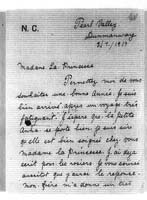 N. C.
Pearl Valley
Dunmanway
2/1/1919
Madame La Princesse
Permettez moi de vous
souhaiter une bonne Année. Je suis
bien arrivé après un voyage très
fatiguant. J'espère que la petite
se porte bien. Je suis sûr
qu'elle est bien soignée chez vous
madame la Princesse. J'ai
écrit pour les rosiers, je vous
aussitôt que j'aurai la réponse.
mon frère m'a donné un